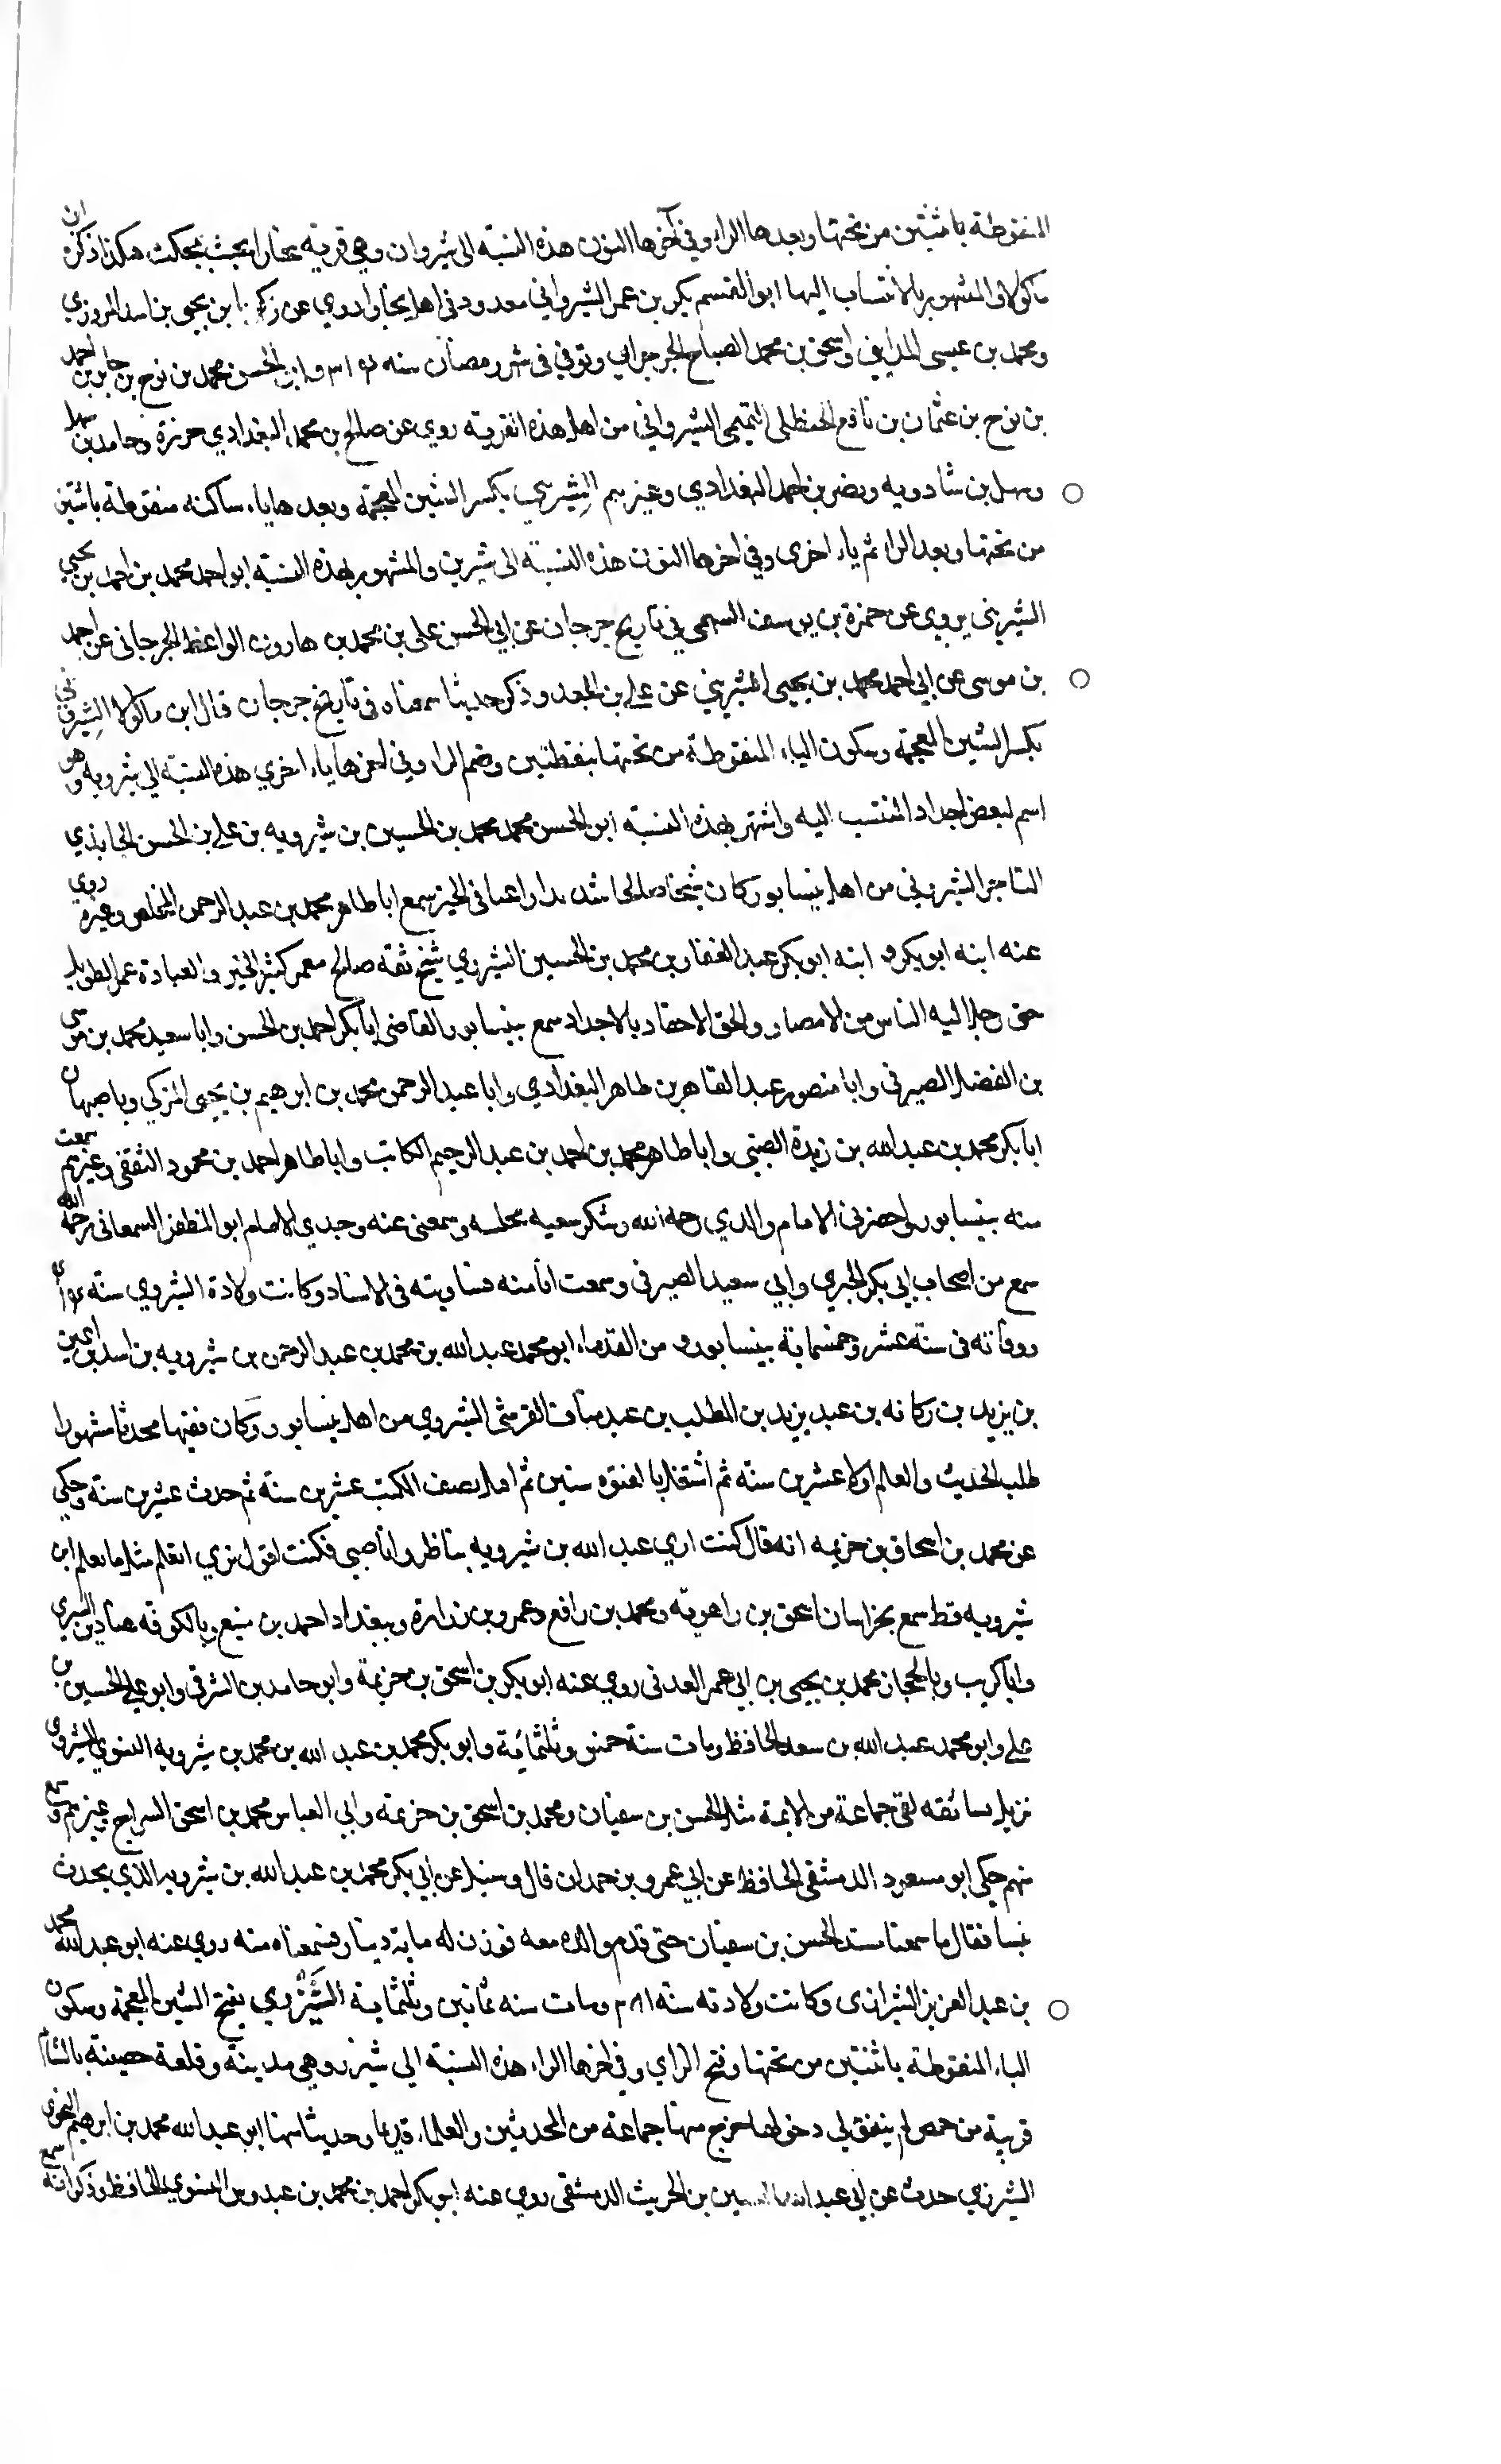 المنقوطة باثنتين من تحتها وبعدها الراء وفي آخرها النون هذه النسبة الى شيروان وهي قرية ببخارا بجنب بمجكث هكذا ذكره ابن
ماكولا والمشهور بالانتساب اليها ابو القسم بكر بن عمر الشيرواني معدود في اهل بخارا روي عن زكريا بن يحيى بن اسد المروزي
ومحمد بن عيسى المدايني واسحق بن محمد الصباح الجرجراي وتوفي في شهر رمضان سنه ٣١٤ وابو الحسن محمد بن نوح بن جابر بن احمد
بن نوح بن عثمان بن نافع الحنظلي التميمي الشيرواني من اهل هذه القرية روي عن صالح بن محمد البغدادي جزرة وحامد بن سهل
وسهل بن شادويه ونصر بن احمد البغدادي وغيرهم الشِيريني بكسر الشين المعجمة وبعدها ياء ساكنه منقوطة باثنتين
من تحتها وبعد الراء ثم ياء اخرى وفي اخرها النون هذه النسبة الى شيرين والمشهور بهذه النسبة ابو احمد محمد بن احمد بن يحيى
الشيريني يروي عن حمزة بن يوسف السهمي في تاريخ جرجان عن ابي الحسن علي بن محمد بن هارون الواعظ الجرجاني عن احمد
بن موسى عن ابي احمد محمد بن يحيى الشيريني عن علي بن الجعد وذكر حديثا سمعناه في تاريخ جرجان قال ابن ماكولا الشيروي
بكسر الشين المعجمة وسكون الياء المنقوطة من تحتها بنقطتين وضم الراء وفي اخرها ياء اخري هذه النسبة الي شيرويه وهو
اسم لبعض اجداد المنتسب اليه واشتهر بهذه النسبة ابو الحسن محمد محمد بن الحسين بن شيرويه بن علي بن الحسن الجنابذي
التاجر الشيروني من اهل نيسابور كان شيخا صالحا سديدا راغبا في الخير سمع ابا طاهر محمد بن عبد الرحمن المخلص وغيره روي
عنه ابنه ابو بكر و ابنه ابو بكر عبد الغفار بن محمد بن الحسين الشيروي شيخ ثقة صالح معمر كثير الخير والعبادة عمر الطويل
حتى رحل اليه الناس من الامصار والحق الاحفاد بالاجداد سمع بنيسابور القاضي ابا بكر احمد بن الحسن وابا سعيد محمد بن موسى
بن الفضل الصيرفي وابا منصور عبد القاهر بن طاهر البغدادي وابا عبد الرحمن محمد بن ابرهيم بن يحيى المزكي وباصبهان
ابا بكر محمد بن عبد الله بن زيدة الضبي وابا طاهر محمد بن احمد بن عبد الرحيم الكاتب وابا طاهر احمد بن محمود الثقفي وغيرهم سمعت
منه بنيسابور واحضرني الامام والدي رحمه الله وشكر سعيه مجلسه وسمعني عنه وجدي الامام ابو المظفر السمعاني رحمه الله
سمع من اصحاب ابي بكر الحيري وابي سعيد الصيرفي وسمعت انا منه فساويته في الاسناد وكانت ولادة الشيروي سنة
ووفاته في سنة عشر وخمسماية بنيسابور و من القدماء ابو محمد عبد الله بن محمد بن عبد الرحمن بن شيرويه بن اسد بن اعين
بن يزيد بن ركانه بن عبد يزيد بن المطلب بن عبد مناف القرشي الشيروي من اهل نيسابور وكان فقيها محدثا مشهورا
طلب الحديث والعلم اولا عشرين سنة ثم اشتغل بالفتوه سنين ثم اقبل بصنف الكتب عشرين سنة ثم حدث عشرين سنة وحكي
عن محمد بن اسحاق بن خزيمه انه قال كنت اري عبد الله بن شيرويه يناظر وانا صبي فكنت اقول تري اتعلم مثل ما تعلم ابن
شيرويه قط سمع بخراسان اسحق بن راهويه ومحمد بن رافع وعمرو بن زرارة وببغداد احمد بن منيع وبالكوفه هناد بن السري
وابا كريب وبالحجاز محمد بن يحيى بن ابي عمر العدني روي عنه ابو بكر بن اسحق بن خزيمة وابو حامد بن الشرقي وابو علي الحسين بن
علي وابو محمد عبد الله بن سعد الحافظ ومات سنة خمس وثلثمائة وابو بكر محمد بن عبد الله بن محمد بن شيرويه النسوي الشيروي
نزيل نسا ثقه لقي جماعة من الايمة مثل الحسن بن سفيان ومحمد بن اسحق بن خزيمه وابي العباس محمد بن اسحق السراج وغيرهم وسمع
منهم حكي ابو مسعود الدمشقي الحافظ عن ابي عمرو بن حمدان قال وسئل عن ابي بكر محمد بن عبد الله بن شيرويه الذي يحدث
بنسا فقال ما سمعنا مسند الحسن بن سفيان حتى قدم والده معه فوزن له ماية دينار فسمعناه منه روي عنه ابو عبد الله محمد
بن عبد العزيز الشيرازي وكانت ولادته سنة ومات سنه ثمانين وثلثماية الشَّيْزَري بفتح الشين المعجمة وسكون
الياء المنقوطة باثنتين من تحتها وفتح الزاي وفي اخرها الراء هذه النسبة الي شيزر وهي مدينة وقلعة حصينة بالشام
قريبة من حمص لم يتفق لي دخولها خرج منها جماعة من المحدثين والعلماء قديما وحديثا منها ابو عبد الله محمد بن ابرهيم النحوي
الشيزري حدث عن ابي عبد الله الحسين بن الحريث الدمشقي روي عنه ابو بكر احمد بن محمد بن عبدوس النسوي الحافظ وذكر انه سمع